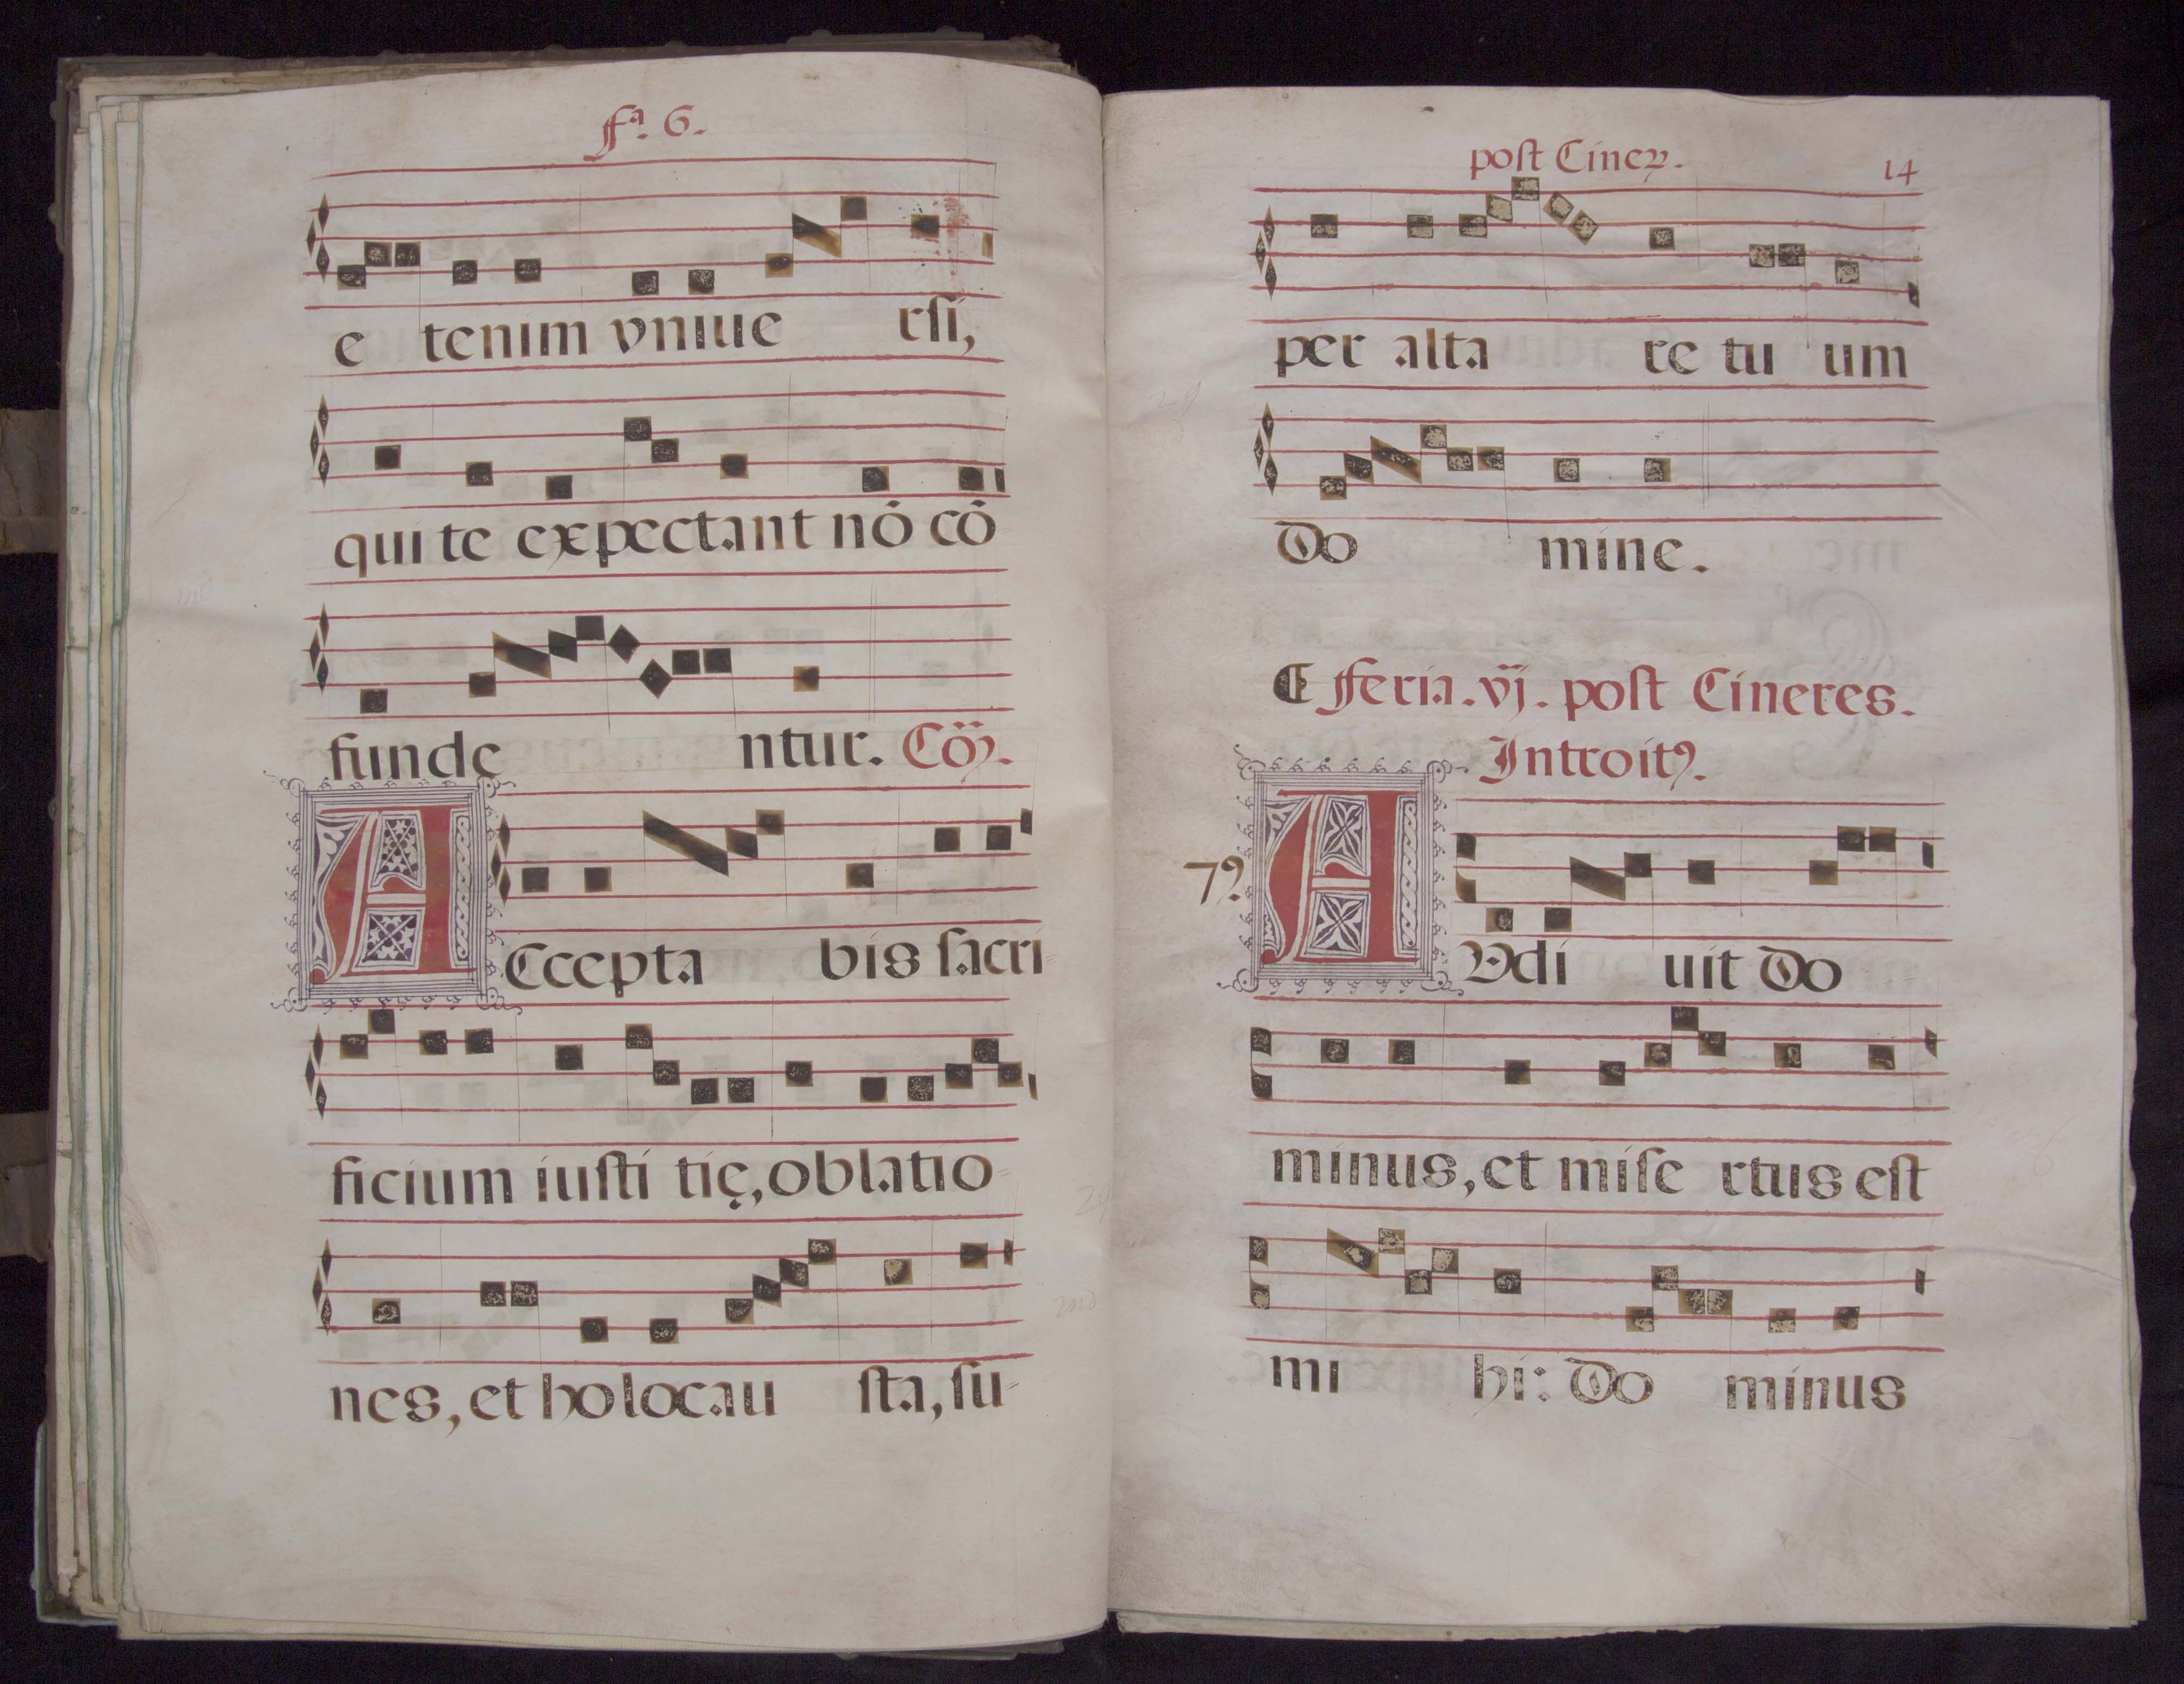 fª. 6.
e tenim vniue rsi,
qui te expectant nō cō
funde ntur. Cōȝ.
ACcepta bis sacri-
ficium iusti tię, oblatio-
nes, et holocau sta, su-
post Cineꝝ. 14
per alta re tu um
Do mine.
¶ Feria. vj. post Cineres.
Introitꝰ.
7ꝰ. AVdi uit Do
minus, et mise rtus est
mi hi: Do minus